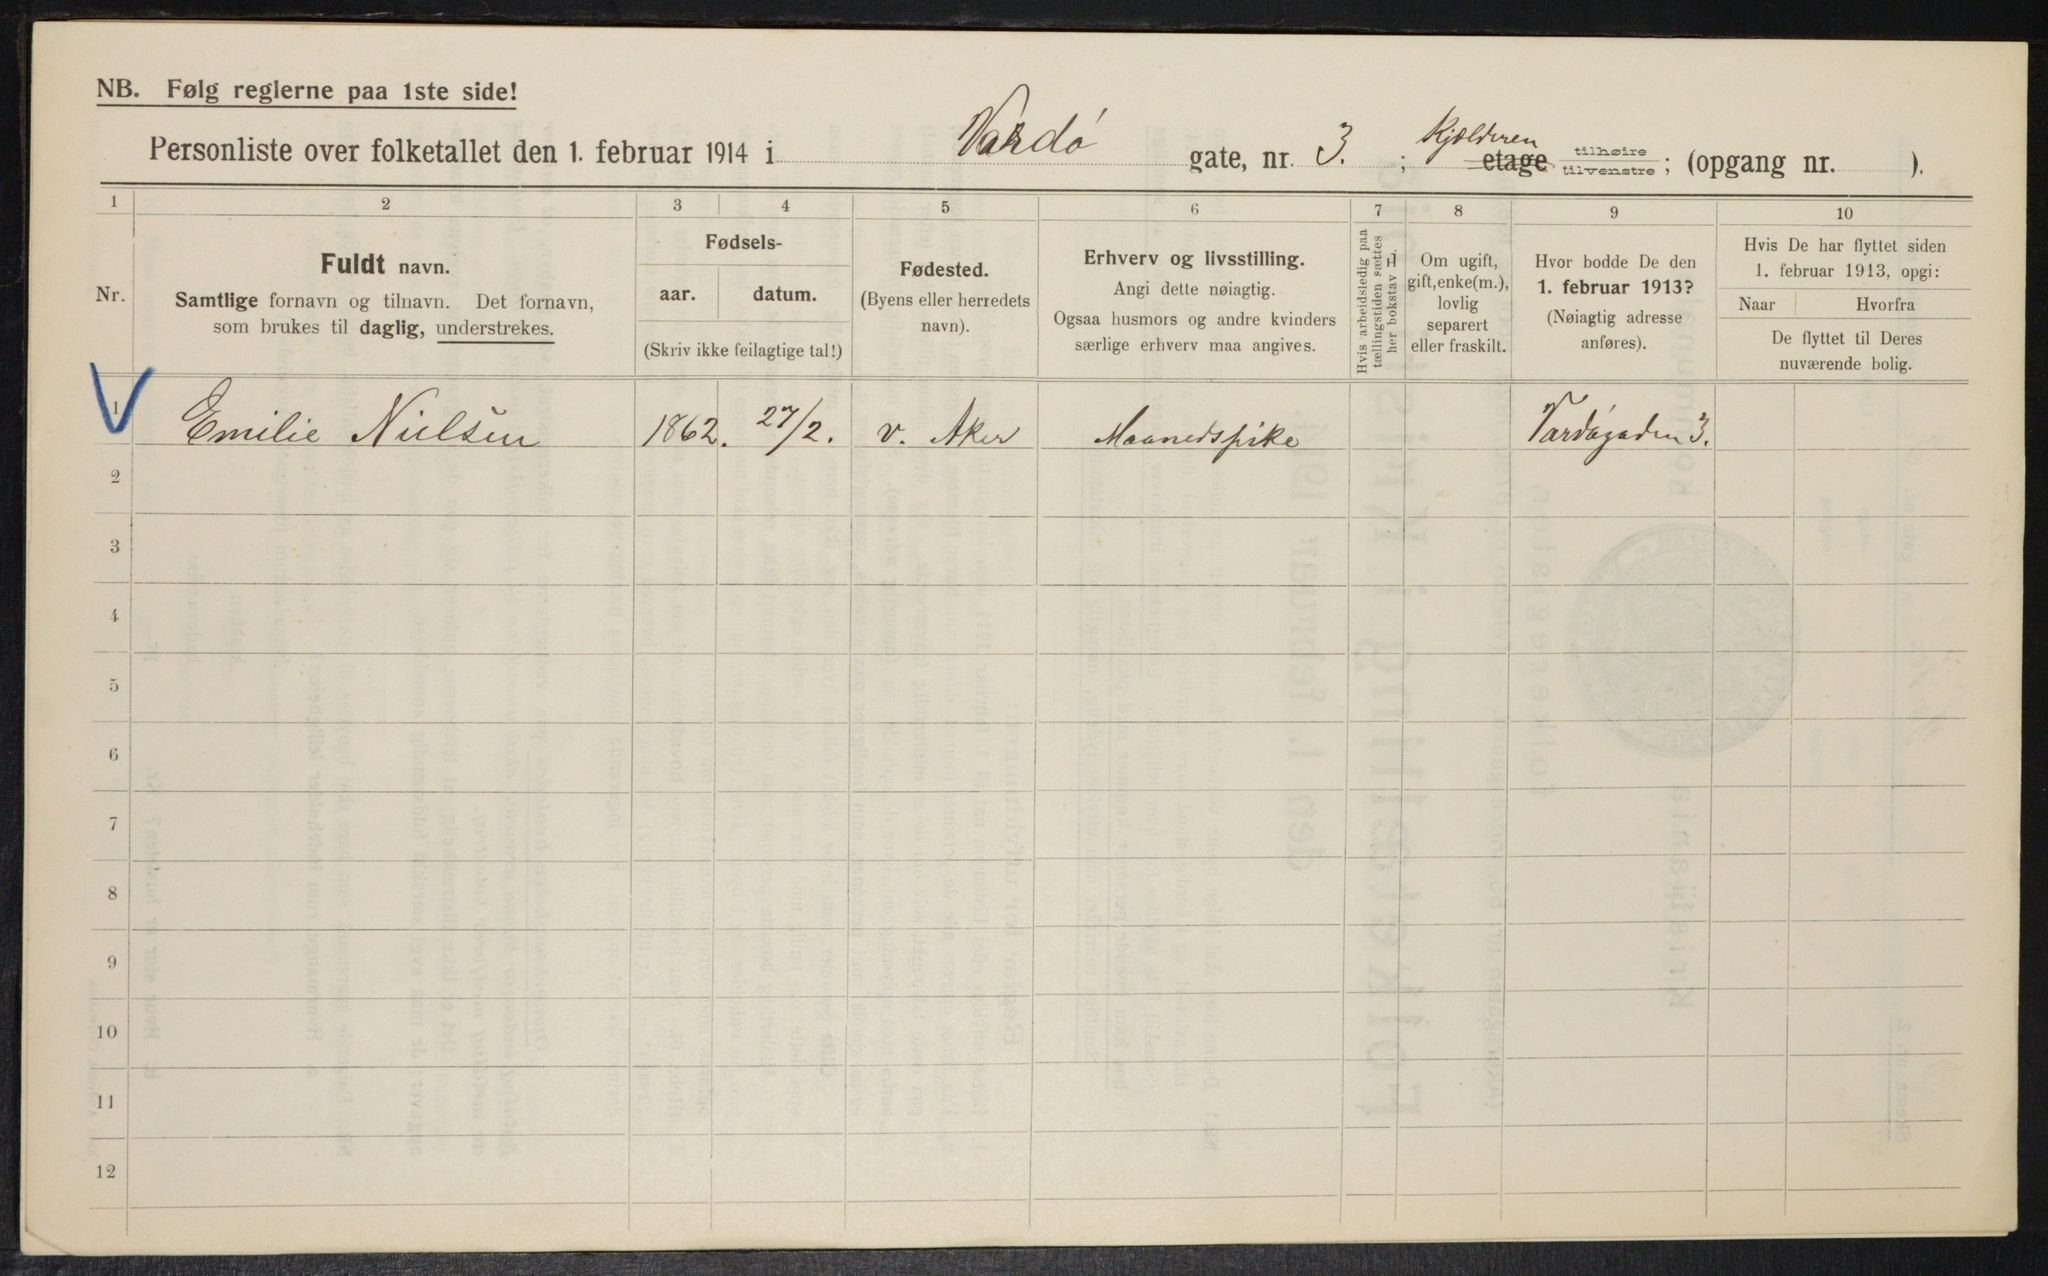 NB. Følg reglerne paa 1ste side!
Personliste over folketallet den 1. februar 1914 i Vardö gate, nr. 3. ; Kjælderen etage tilhøire tilvenstre; (opgang nr. ).
1 2 3 4 5 6 7 8 9 10
Nr.
Fuldt navn.
Samtlige fornavn og tilnavn. Det fornavn,
som brukes til daglig, understrekes.
Fødsels-
aar. datum.
(Skriv ikke feilagtige tal!)
Fødested.
(Byens eller herredets
navn).
Erhverv og livsstilling.
Angi dette nøiagtig.
Ogsaa husmors og andre kvinders
særlige erhverv maa angives.
Hvis arbeidsledig paa
tællingstiden sættes
her bokstav L.
Om ugift,
gift, enke(m.),
lovlig
separert
eller fraskilt.
Hvor bodde De den
1. februar 1913?
(Nøiagtig adresse
anføres).
Hvis De har flyttet siden
1. februar 1913, opgi:
Naar Hvorfra
De flyttet til Deres
nuværende bolig.
1 Emilie Nielsen 1862. 27/2. v. Aker Maanedspike Vardøgaden 3.
2
3
4
5
6
7
8
9
10
11
12